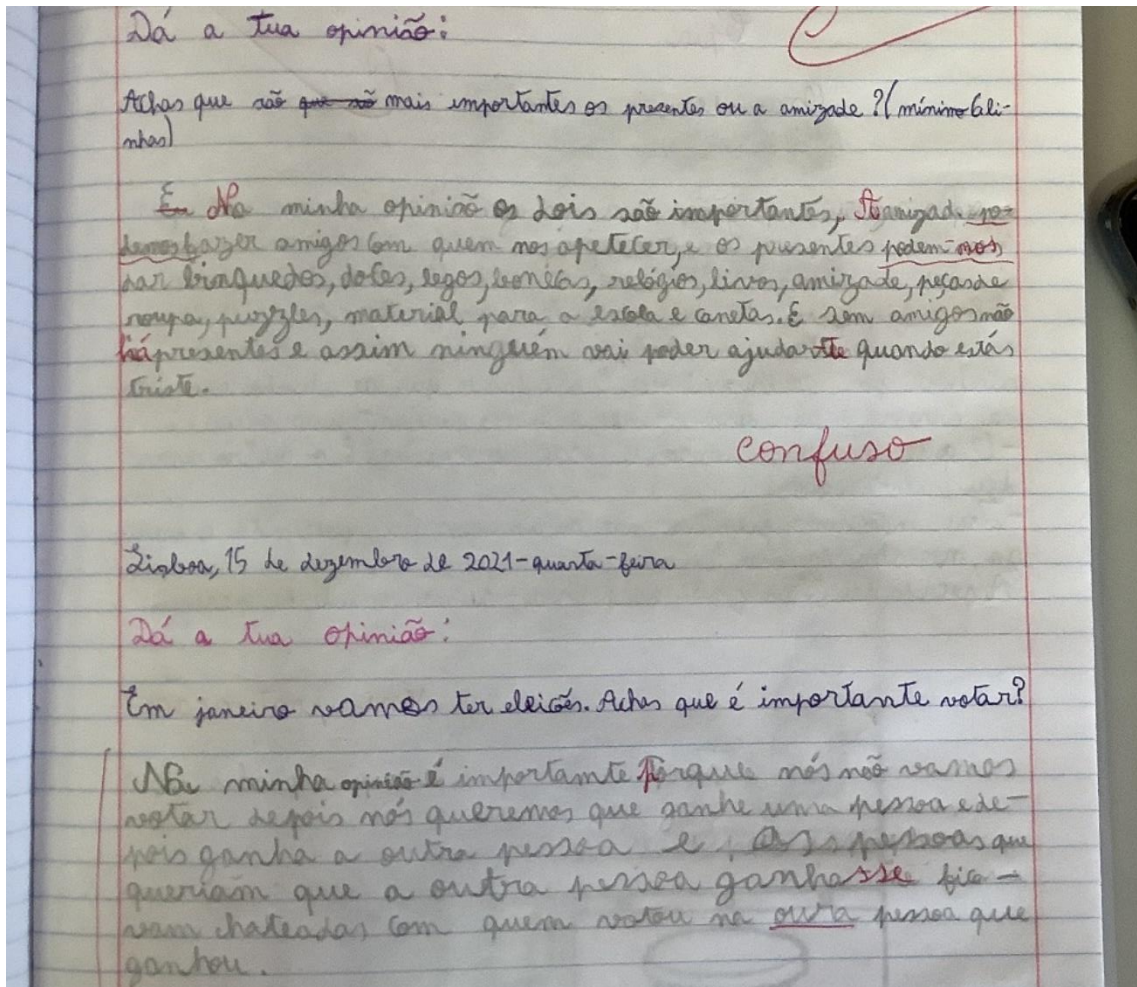 Dá a tua opinião:
Achas que são que são mais importantes os presentes ou a amizade ? (mínimo 6 li-
nhas)
E Na minha opinião os dois são importantes, A amizade po-
demos fazer amigos com quem nos apetecer, e os presentes podem-nos
dar brinquedos, doces, legos, bonecas, relógios, livros, amizade, peças de
roupa, puzzles, material para a escola e canetas. E sem amigos não
há presentes e assim ninguém vai poder ajudar-te quando estás
triste.
confuso
Lisboa, 15 de dezembro de 2021-quarta-feira
Dá a tua opinião:
Em janeiro vamos ter eleições. Achas que é importante votar?
Na minha opinião é importante porque nós não vamos
votar depois nós queremos que ganhe uma pessoa e de-
pois ganha a outra pessoa e, as pessoas que
queriam que a outra pessoa ganhasse fica-
vam chateadas com quem votou na oura pessoa que
ganhou.